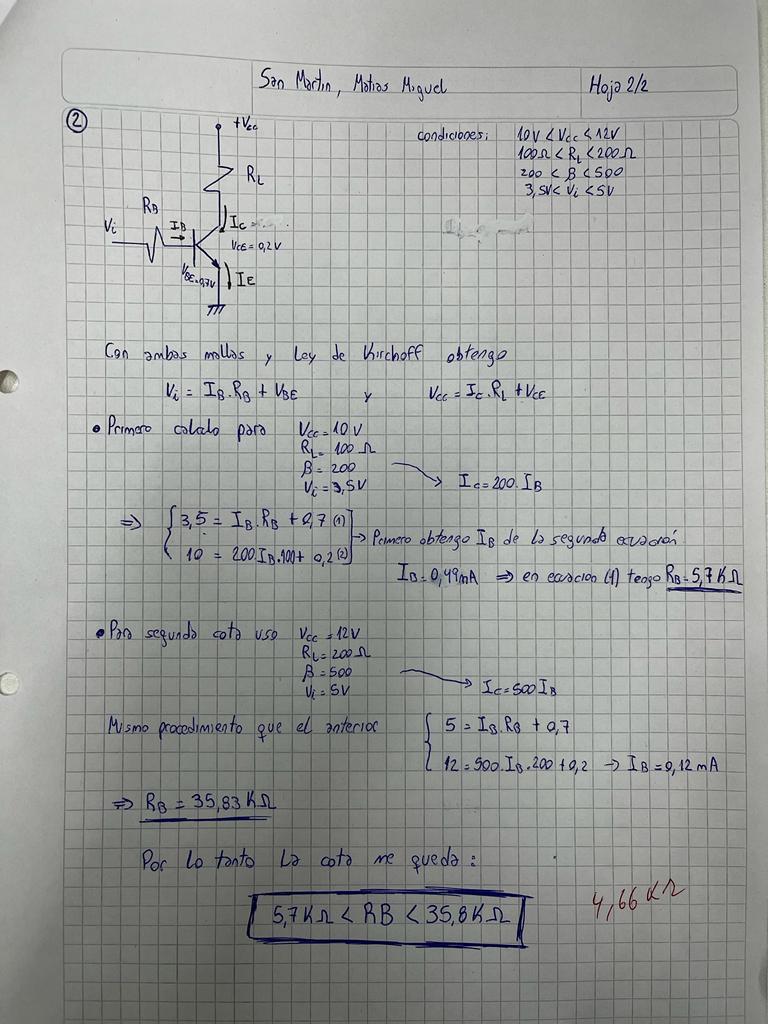 San Martin, Matias Miguel
Hoja 2/2
②
+Vcc
RL
RB
Vi
IB
IC =
VCE = 0,2V
VBE=0,7V
IE
condiciones: 10V < Vcc < 12V
100Ω < RL < 200Ω
200 < β < 500
3,5V < Vi < 5V
Con ambas mallas y Ley de Kirchoff obtengo
Vi = IB.RB + VBE y Vcc = Ic.RL + VCE
• Primero calculo para Vcc = 10V
RL = 100 Ω
β = 200
Vi = 3,5V
→ Ic=200.IB
⇒ { 3,5 = IB.RB + 0,7 (1)
10 = 200.IB.100 + 0,2 (2)
→ Primero obtengo IB de la segunda ecuación
IB=0,49mA ⇒ en ecuacion (1) tengo RB=5,7KΩ
• Para segunda cota uso Vcc = 12V
RL = 200Ω
β = 500
Vi = 5V
→ Ic=500 IB
Mismo procedimiento que el anterior { 5 = IB.RB + 0,7
12 = 500.IB.200 + 0,2 → IB = 0,12mA
⇒ RB = 35,83KΩ
Por lo tanto La cota me queda:
5,7KΩ < RB < 35,8KΩ
4,66KΩ